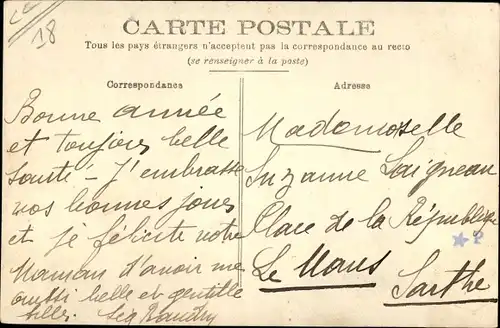 18
CARTE POSTALE
Tous les pays étrangers n'acceptent pas la correspondance au recto
(se renseigner à la poste)
Correspondance
Adresse
Bonne année
et toujours belle
santé - J'embrasse
vos bonnes joues
et je félicite votre
Maman d'avoir une
aussi belle et gentille
fille.
Mademoiselle
Suzanne Saigneau
Place de la République
Le Mans
Sarthe